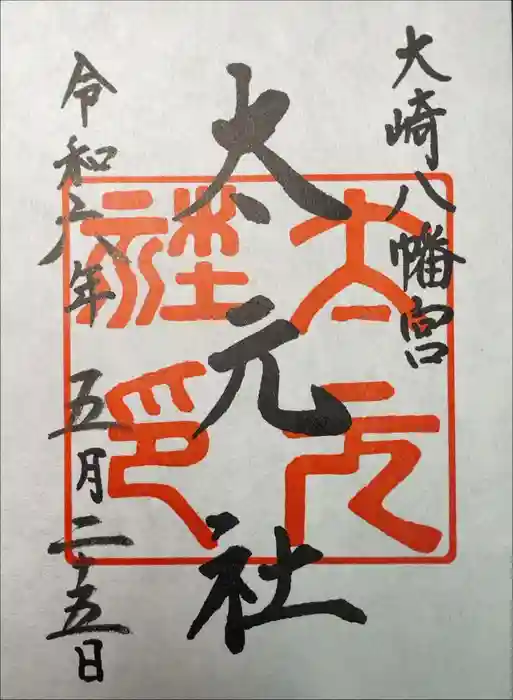 大崎八幡宮
太元社
太元社印
令和六年 五月二十五日